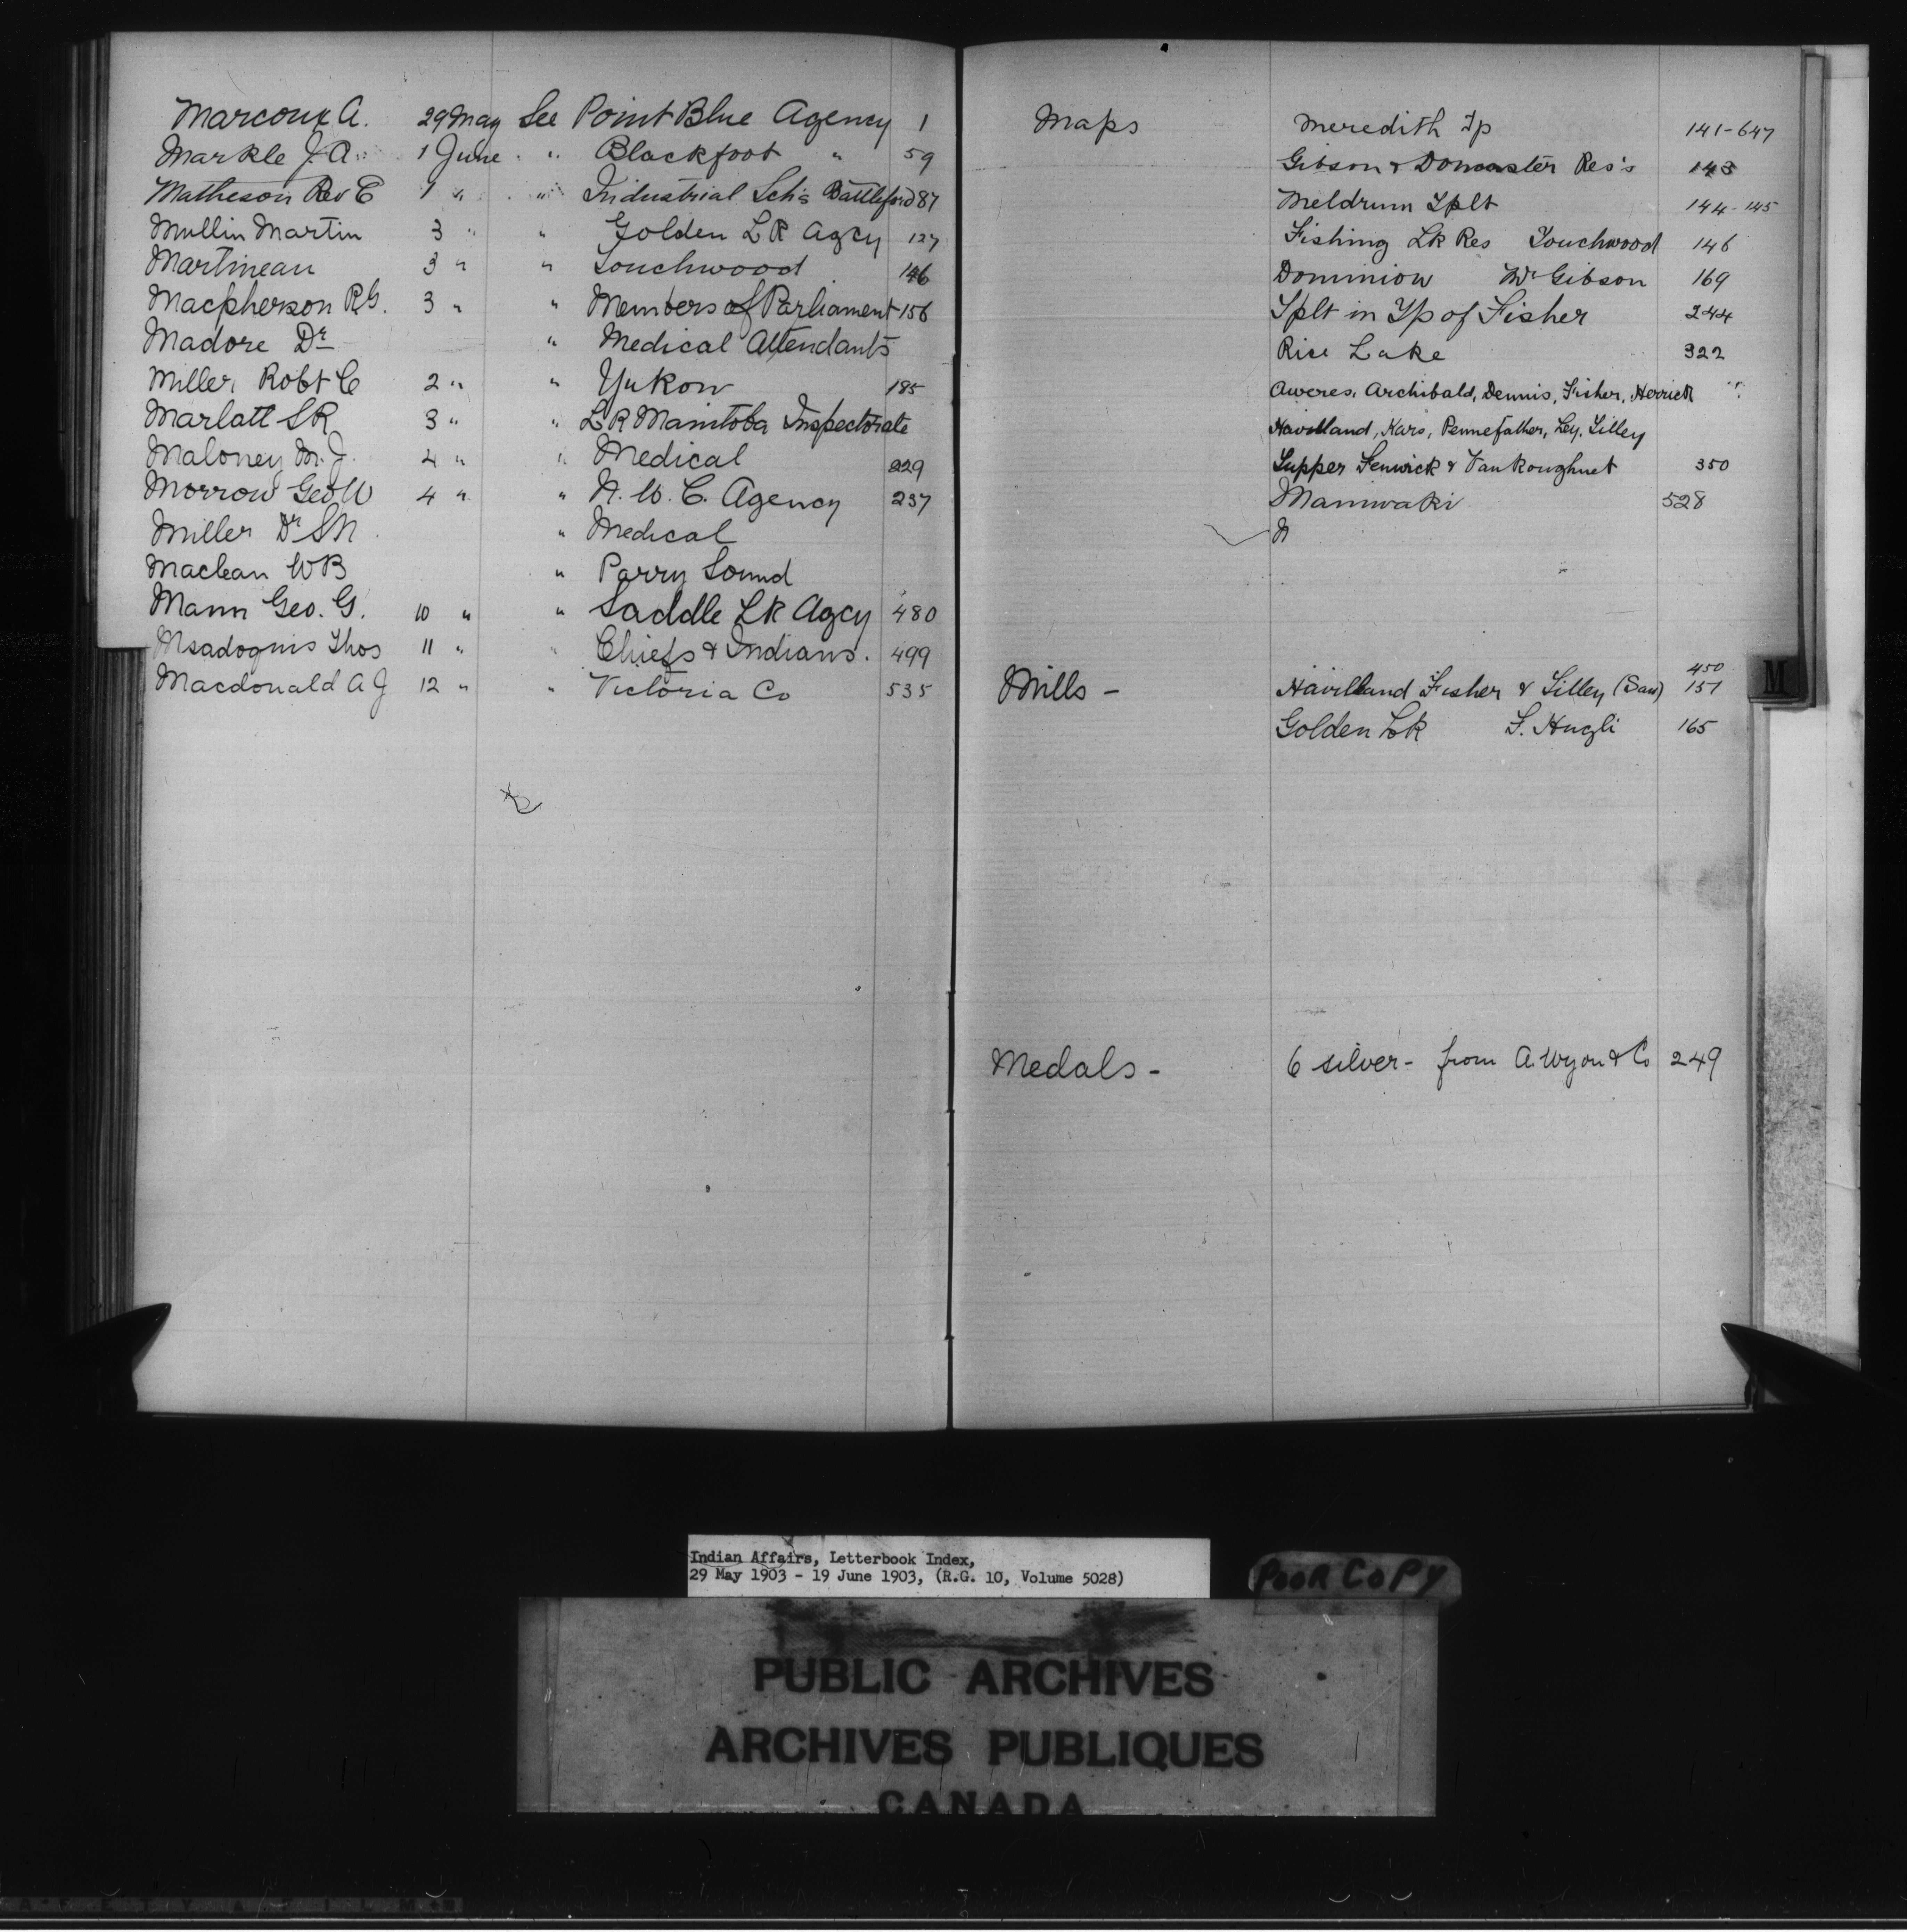 Marcoux A. 29 May See Point Blue Agency 1
Markle J. A. 1 June " Blackfoot " 59
Matheson Rev E 1 " " Industrial Sch's Battleford 87
Mullin Martin 3 " " Golden LK Agcy 127
Martineau 3 " " Touchwood 146
Macpherson R.G. 3 " " Members of Parliament 156
Madore Dr " Medical Attendants
Miller Robt C 2 " " Yukon 185
Marlatt SR 3 " " LR Manitoba Inspectorate
Maloney M. J. 4 " " Medical 229
Morrow Geo W 4 " " N. W. C. Agency 237
Miller Dr SN " Medical
Maclean WB " Parry Sound
Mann Geo. G. 10 " " Saddle LK Agcy 480
Msadoquis Thos 11 " " Chiefs & Indians. 499
Macdonald A J 12 " " Victoria Co 535
Maps Meredith Tp 141-647
Gibson & Doncaster Res's 143
Meldrum Tplt 144-145
Fishing Lk Res Touchwood 146
Dominion Wm Gibson 169
Tplt in Tp of Fisher 244
Rice Lake 322
Aweres, Archibald, Dennis, Fisher, Herrick "
Havilland, Kars, Pennefather, Ley, Tilley
Tupper Fenwick & Vankoughnet 350
Maniwaki 528
Mills - Havilland Fisher & Tilley (Saw) 450 157
Golden Lk F. Hugli 165
Medals - 6 silver - from A. Wyon & Co 249
M
Indian Affairs, Letterbook Index,
29 May 1903 - 19 June 1903, (R.G. 10, Volume 5028)
POOR COPY
PUBLIC ARCHIVES
ARCHIVES PUBLIQUES
CANADA